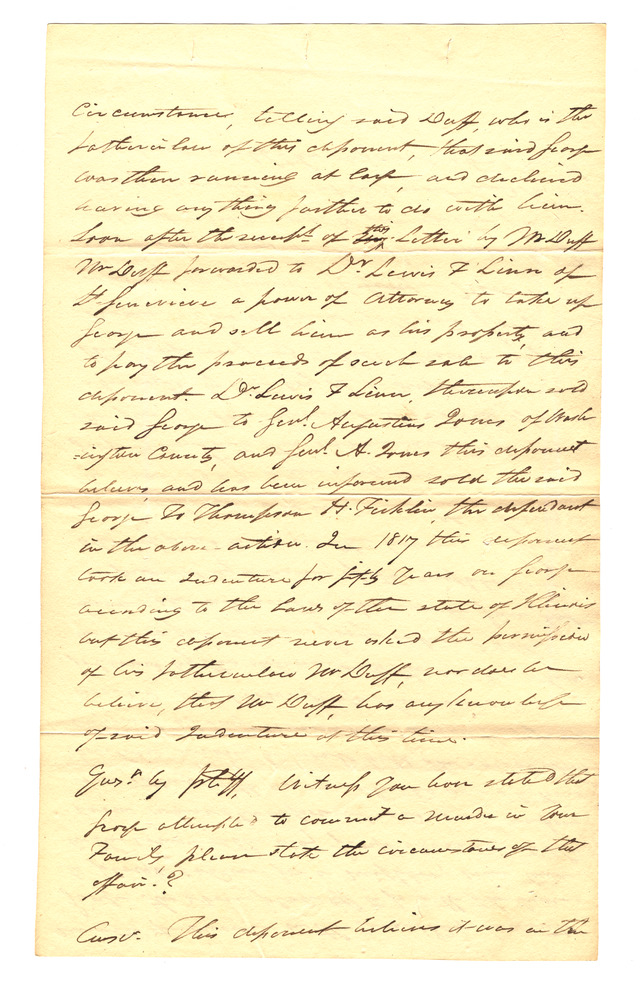 Circumstance, telling said Duff, who is the
father in law of this deponent, that said George
was then running at large, and declined
having anything farther to do with him.
Soon after the receipt of this Letter by Mr Duff
Mr Duff forwarded to Dr Lewis F Linn of
St Genevieve a power of Attorney to take up
George and sell him as his property, and
to pay the proceeds of such sale to this
deponent. Dr Lewis F Linn, thereupon sold
said George to Genl. Augustus Jones of Wash
=ington County, and Genl A. Jones this deponent
believes, and has been informed sold the said
George to Thompson H. Ficklin, the defendant
in the above action. In 1817 this deponent
took an Indenture for fifty Years on George
according to the Laws of the state of Illinois
but this deponent never asked the permission
of his father in law Mr Duff, nor does he
believe, that Mr Duff, has any knowledge
of said Indenture at this time.
Quesn by pltff, Witness You have stated that
George attempted to commit a murder in Your
Family, please state the circumstances of that
affair.?
Answ. This deponent believes it was in the